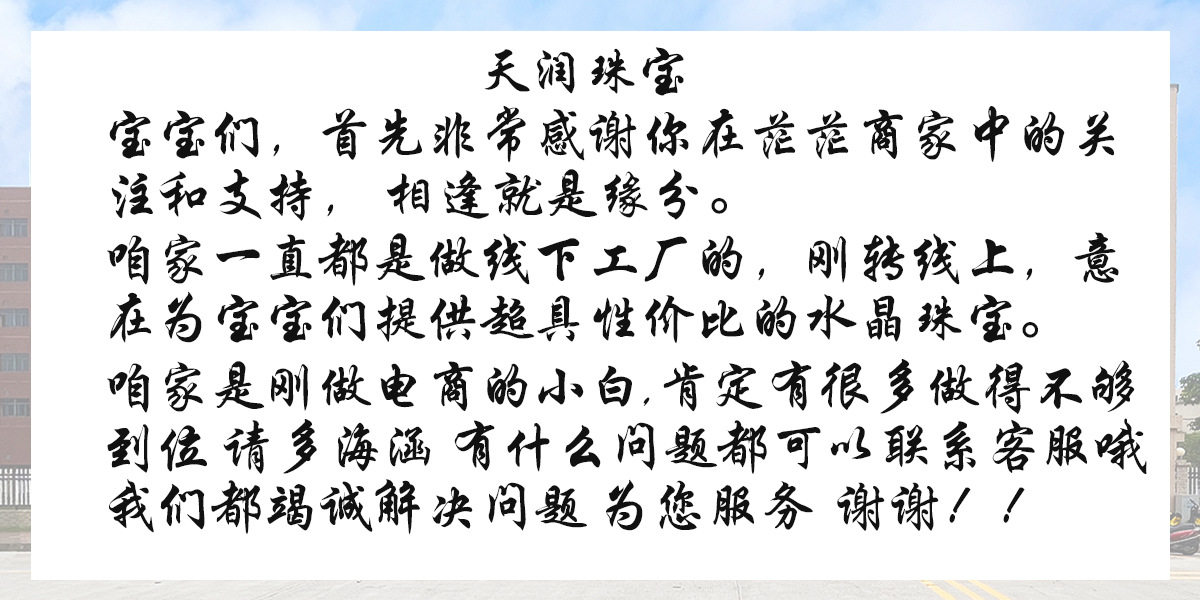 天润珠宝
宝宝们，首先非常感谢你在茫茫商家中的关
注和支持， 相逢就是缘分。
咱家一直都是做线下工厂的，刚转线上，意
在为宝宝们提供超具性价比的水晶珠宝。
咱家是刚做电商的小白,肯定有很多做得不够
到位 请多海涵 有什么问题都可以联系客服哦
我们都竭诚解决问题 为您服务 谢谢！！